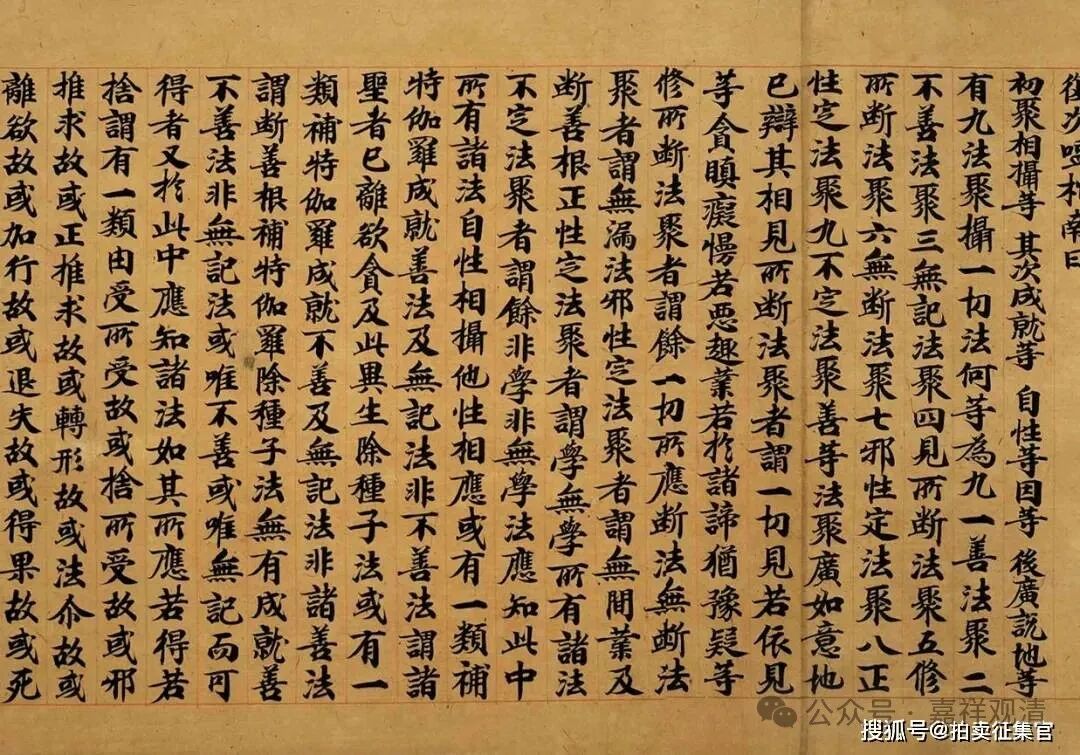 復次嗢柁南曰
初聚相攝等 其次成就等 自性等因等 後廣說地等
有九法聚攝一切法何等為九一善法聚二
不善法聚三無記法聚四見所断法聚五修
所断法聚六無断法聚七邪性定法聚八正
性定法聚九不定法聚善等法聚廣如意地
已辯其相見所断法聚者謂一切見若依見
等貪瞋癡慢若惡趣業若於諸諦猶豫疑等
修所断法聚者謂餘一切所應断法無断法
聚者謂無漏法邪性定法聚者謂無間業及
断善根正性定法聚者謂學無學所有諸法
不定法聚者謂餘非學非無學法應知此中
所有諸法自性相攝他性相應或有一類補
特伽羅成就善法及無記法非不善法謂諸
聖者已離欲貪及此異生除種子法或有一
類補特伽羅成就不善及無記法非諸善法
謂断善根補特伽羅除種子法無有成就善
不善法非無記法或唯不善或唯無記而可
得者又於此中應知諸法如其所應若得若
捨謂有一類由受所受故或捨所受故或邪
推求故或正推求故或轉形故或法尒故或
離欲故或加行故或退失故或得果故或死
公众号·嘉祥观清
搜狐号@拍卖征集官